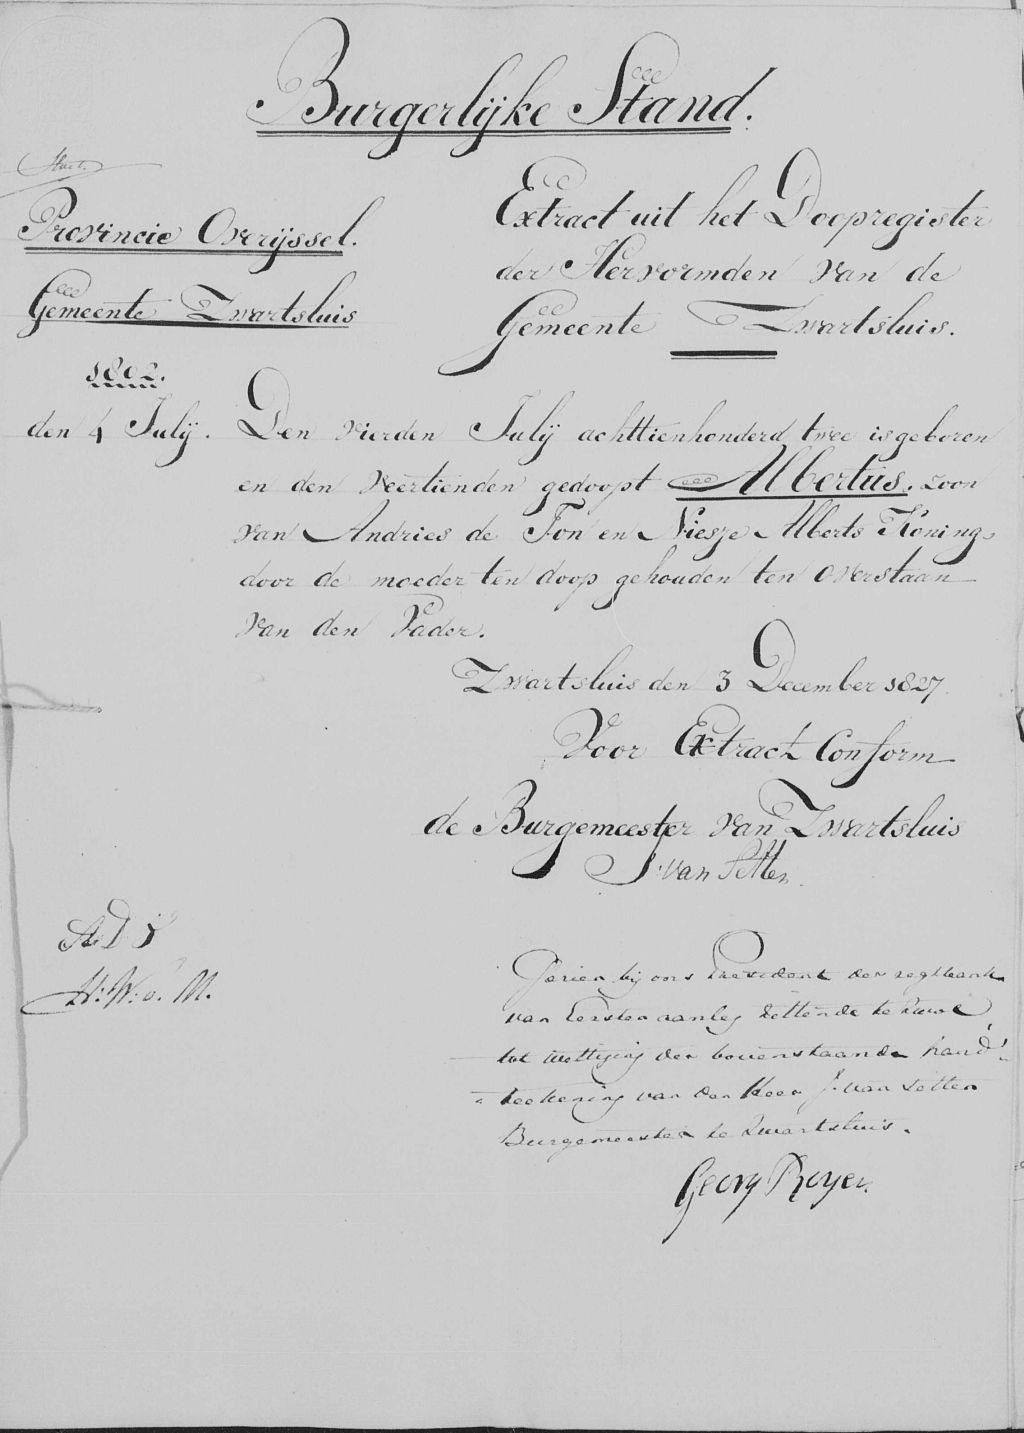 Burgerlijke Stand.
Provincie Overijssel.
Gemeente Zwartsluis
Extract uit het Doopregister
der Hervormden van de
Gemeente Zwartsluis.
1802.
den 4 Julij.
Den vierden Julij achttienhonderd twee is geboren
en den veertienden gedoopt Albertus. zoon
van Andries de Jon en Niesje Alberts Koning,
door de moeder ten doop gehouden ten overstaan
van den Vader.
Zwartsluis den 3 December 1827
Voor Extract Conform
de Burgemeester van Zwartsluis
J. van Setten
H: W: v. M.
Gezien bij ons President der regtbank
van Eersten aanleg zittende te Zwol
tot wettiging der bovenstaande hand
= teekening van den Heer J. van Setten
Burgemeester te Zwartsluis.
Georg Royer.